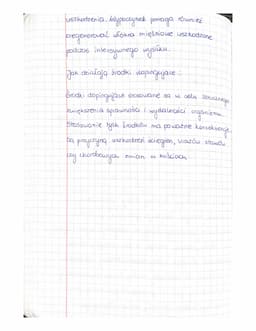 uszkodzenia. Odpoczynek pomaga również
zregenerować włókna mięśniowe uszkodzone
podczas intensywnego wysiłku.
Jak działają środki dopingujące.
Środki dopingujące stosowane są w celu sztucznego
zwiększenia sprawności i wydolności organizmu.
Stosowanie tych środków ma poważne konsekwencje.
Są przyczyną uszkodzeń ścięgien, wiązów stawów
czy chorobowych zmian w kościach.